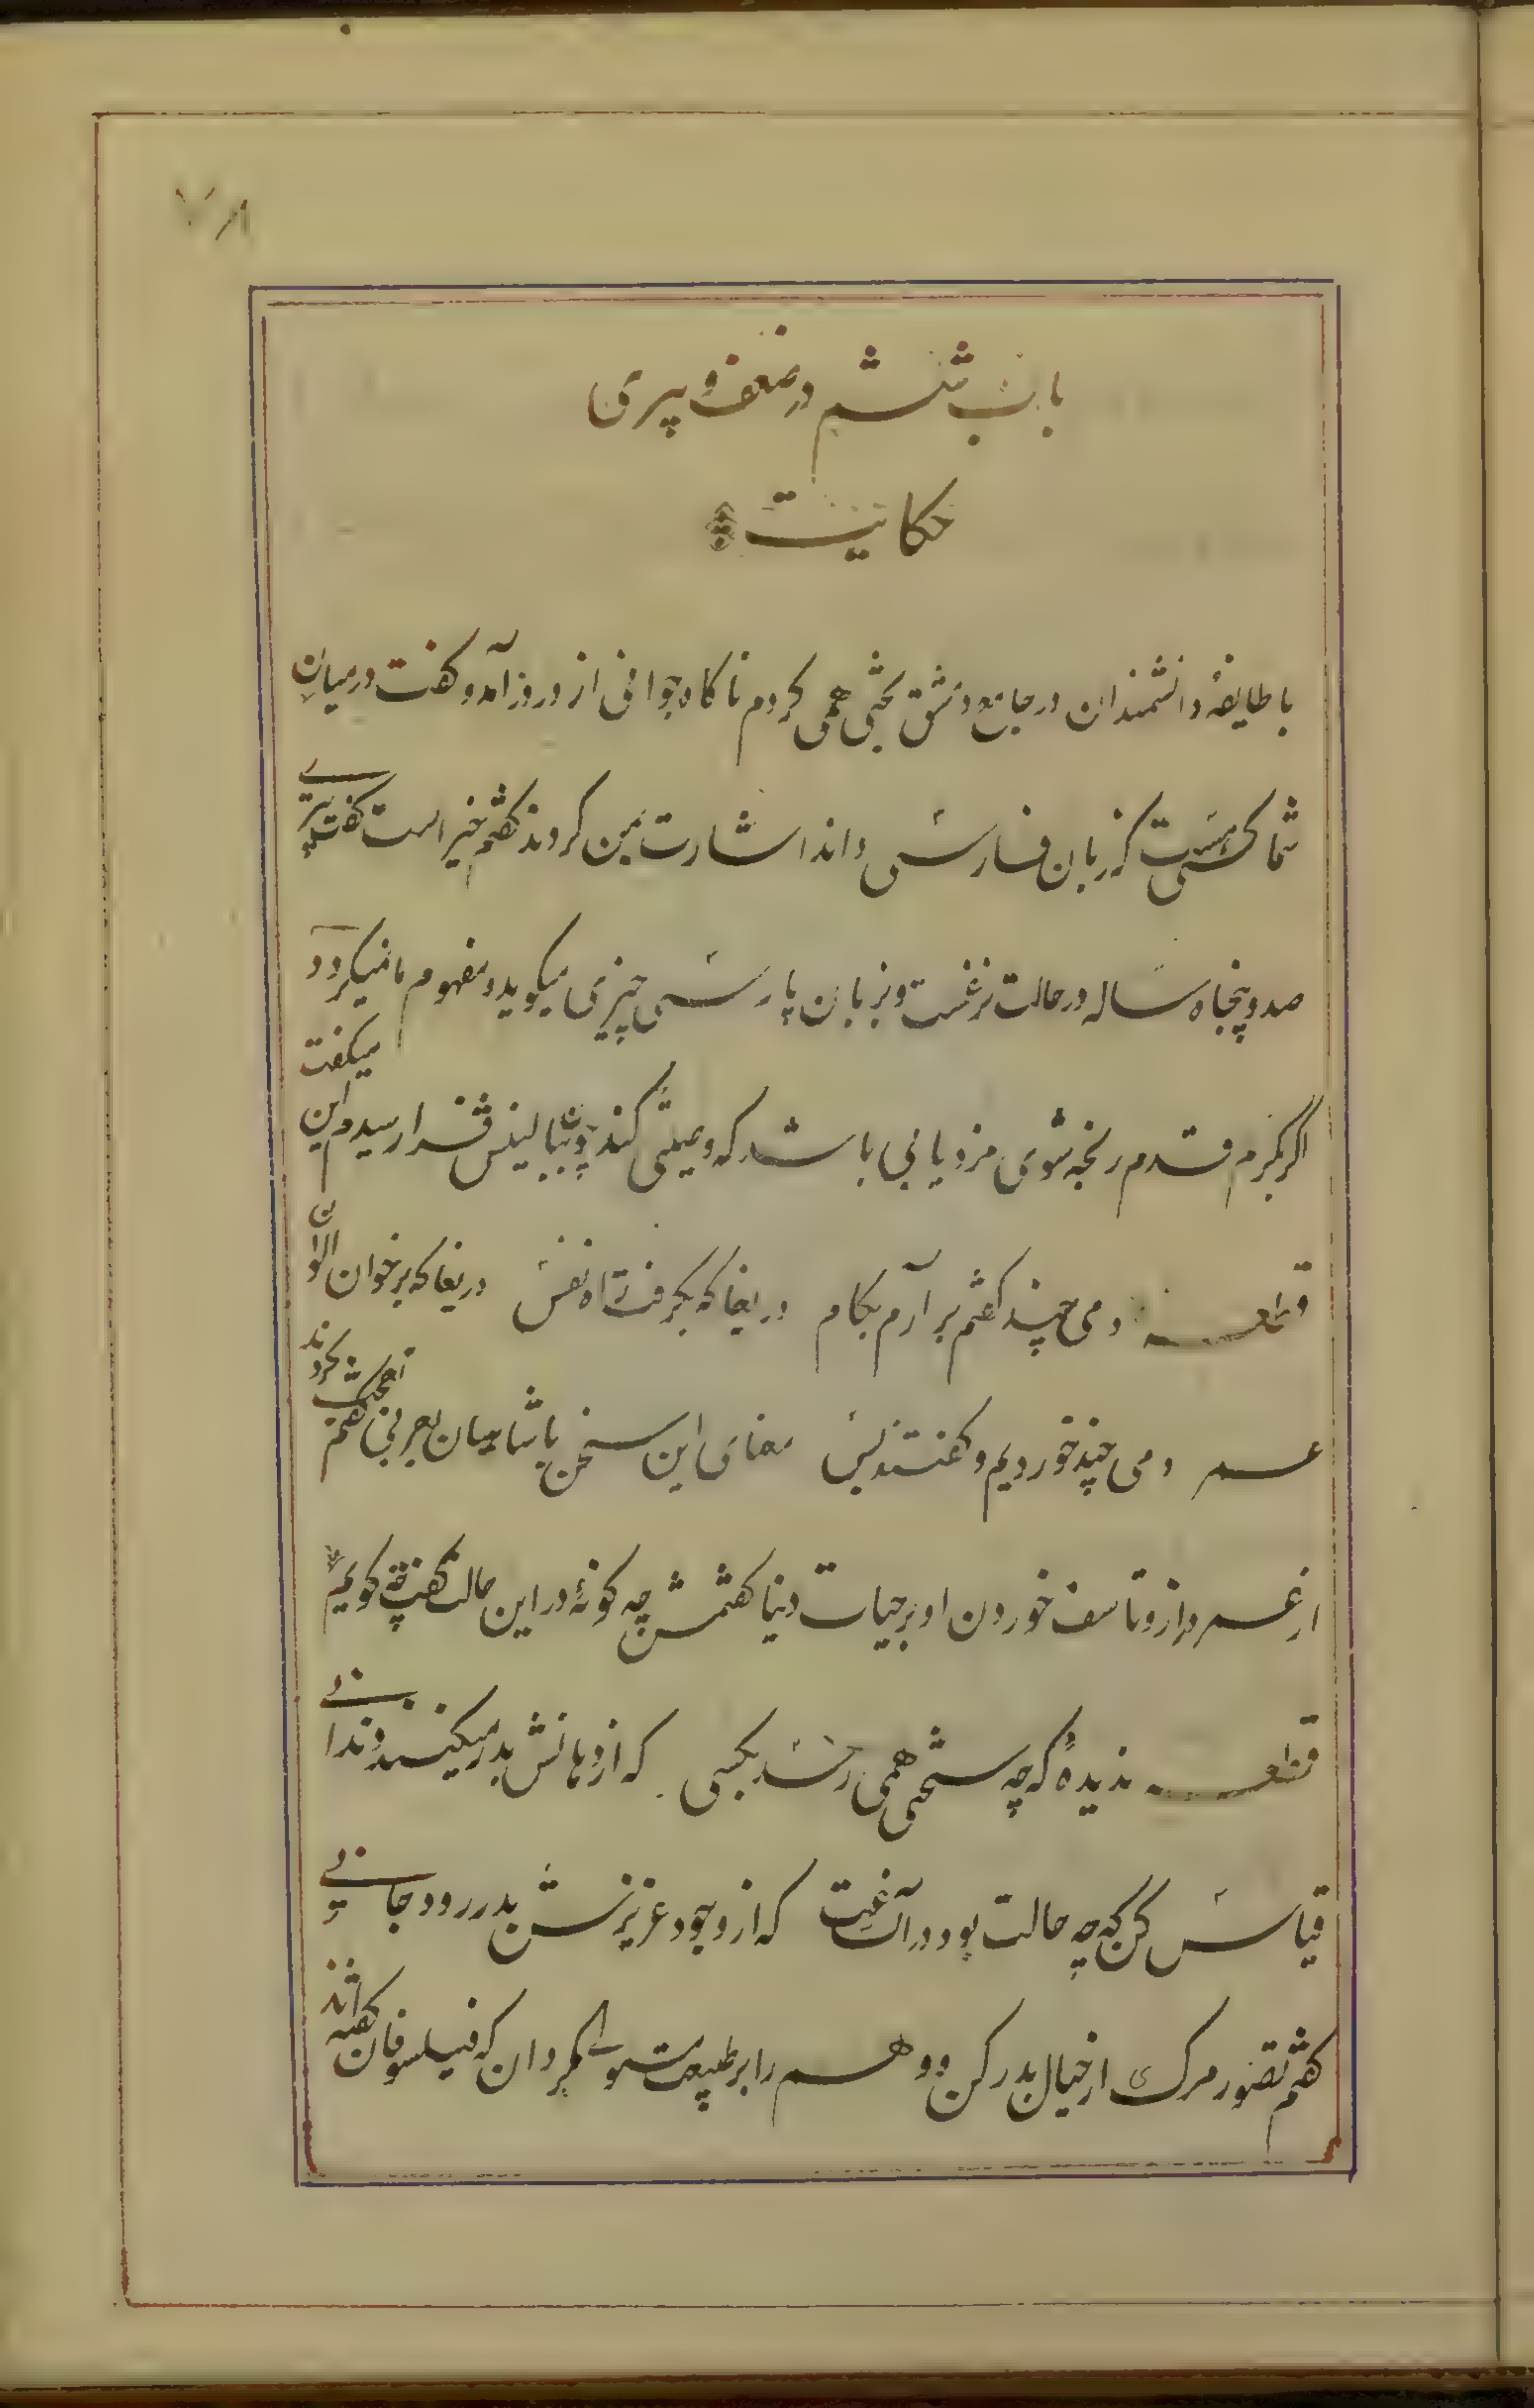 ۷۸
باب ششم در ضعف و پیری
حکایت
با طایفهٔ دانشمندان در جامع دمشق بحثی همی کردم ناکاه جوانی از در درآمد و کفت درمیان
شما کسی هست که زبان فارسی داند اشارت بمن کردند کفتم خیر است کفت پیری
صد و پنجاه ساله در حالت نزعست و بزبان پارسی چیزی میکوید و مفهوم ما نمیکردد
اکر بکرم قدم رنجه شوی مزد یابی باشد که وصیتی کند چون ببالینش فرا رسیدم این میکفت
قطعه دمی چند کفتم برآرم بکام دریغا که بکرفت راه نفس دریغا که بر خوان الوان
عمر دمی چند خوردیم و کفتند بس معنای این سخن با شامیان بعربی کفتم تعجب کردند
از عمر دراز و تاسف خوردن او بر حیات دنیا کفتمش چه کونهٔ در این حالت کفت چه کویم
قطعه ندیدهٔ که چه سختی همی رسد بکسی که از دهانش بدر میکنند دندانی
قیاس کن که چه حالت بود در آن ساعت که از وجود عزیزش بدر رود جانی
کفتم تصور مرک از خیال بدر کن و وهم را بر طبیعت مستولی مکردان که فیلسوفان کفته‌اند